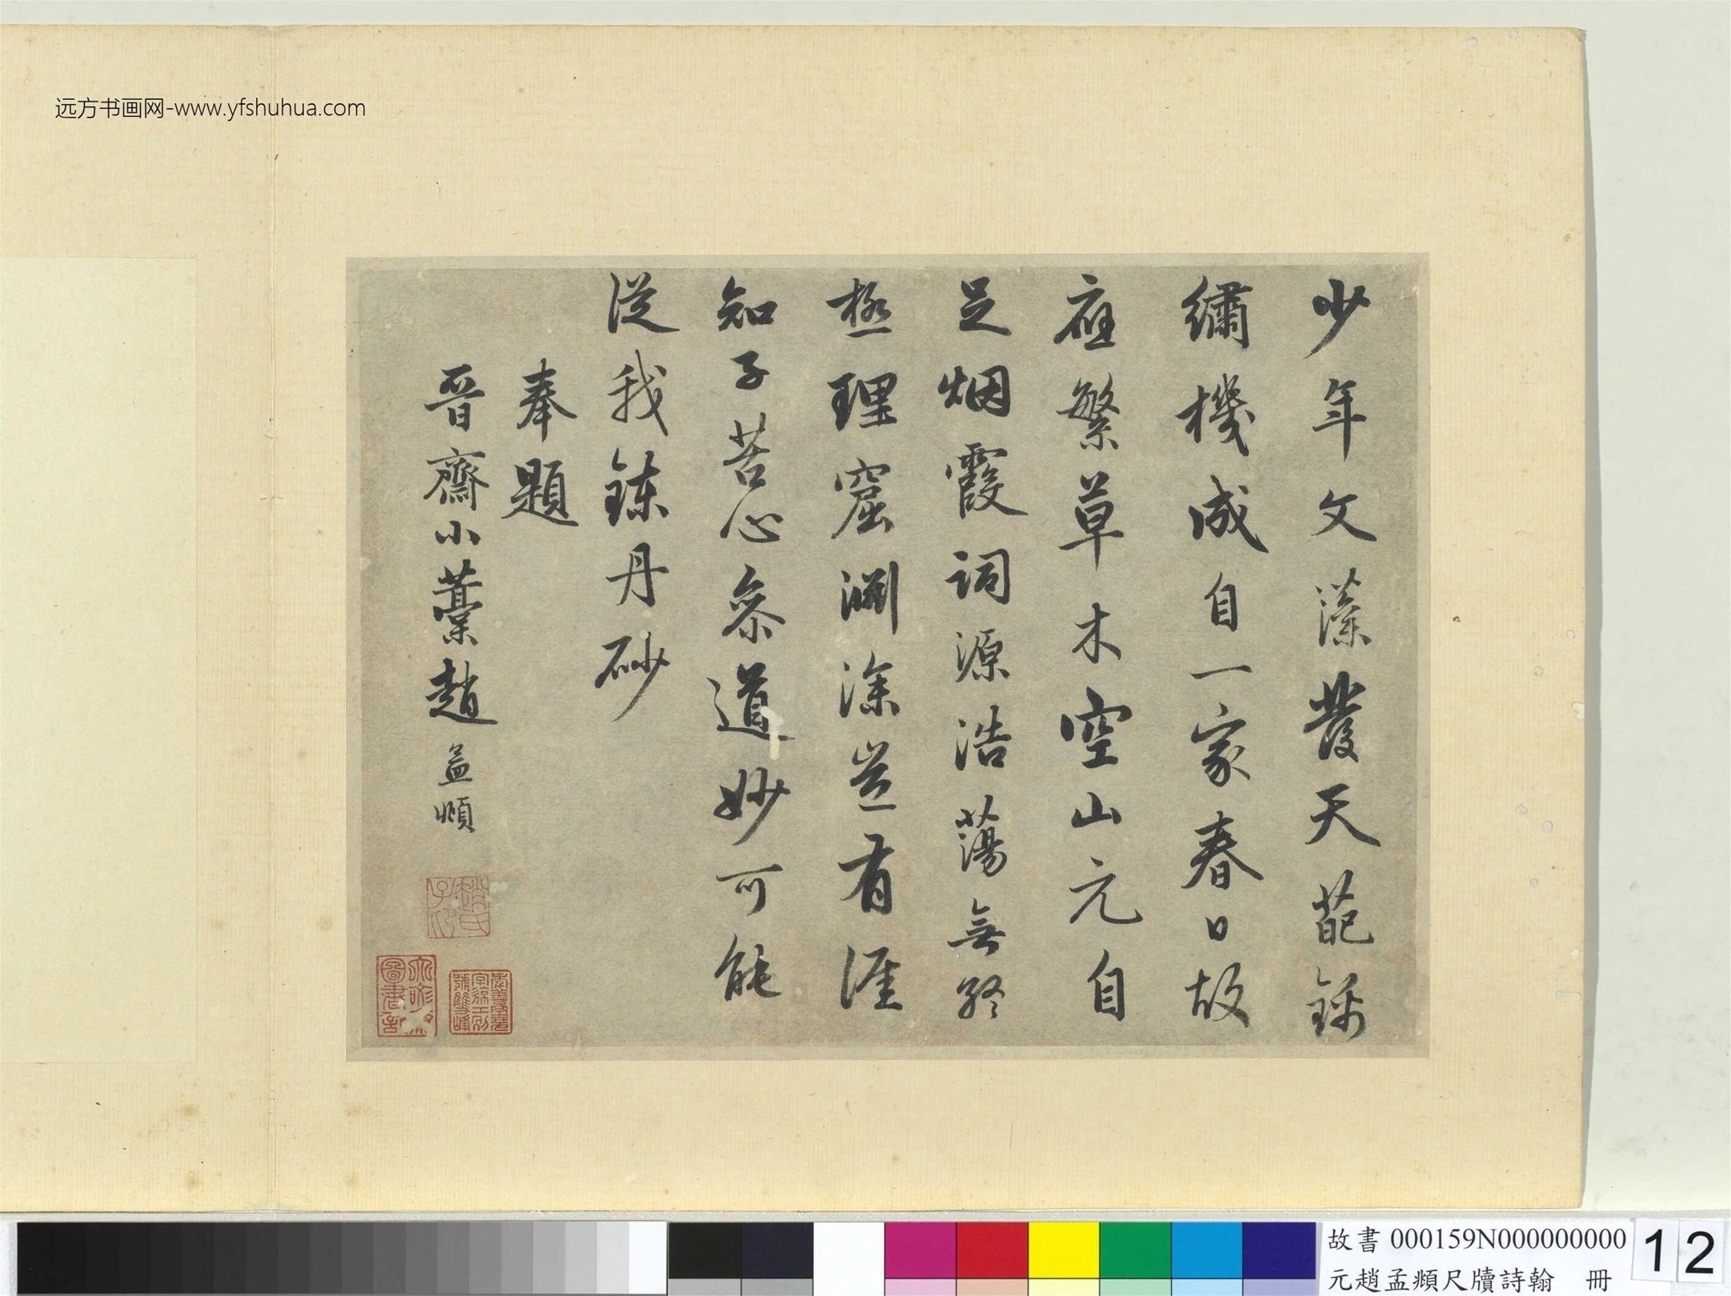 远方书画网-www.yfshuhua.com
少年文藻發天葩錦
繡機成自一家春日故
應繁草木空山元自
足烟霞詞源浩蕩無終
極理窟淵深豈有涯
知子苦心參道妙可能
從我鍊丹砂
奉題
晉齋小藁趙孟頫
趙氏子昂
故書 000159N000000000
元趙孟頫尺牘詩翰 冊
12